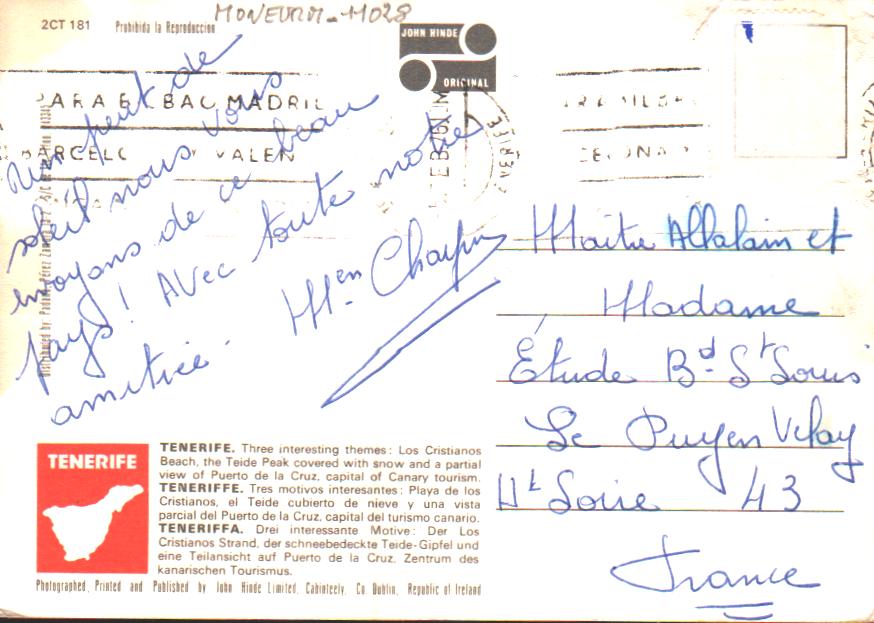 MONEURM-11028
2CT 181 Prohibida la Reproduccion
JOHN HINDE
ORIGINAL
Un peut de
soleil nous vous
envoyons de ce beau
pays! Avec toute notre
amitiée.
Maitre Allalain et
Madame
Étude Bd St Louis
Le Puy en Velay
Ht Loire 43
France
TENERIFE
TENERIFE. Three interesting themes: Los Cristianos
Beach, the Teide Peak covered with snow and a partial
view of Puerto de la Cruz, capital of Canary tourism.
TENERIFFE. Tres motivos interesantes: Playa de los
Cristianos, el Teide cubierto de nieve y una vista
parcial del Puerto de la Cruz, capital del turismo canario.
TENERIFFA. Drei interessante Motive: Der Los
Cristianos Strand, der schneebedeckte Teide-Gipfel und
eine Teilansicht auf Puerto de la Cruz, Zentrum des
kanarischen Tourismus.
Photographed, Printed and Published by John Hinde Limited, Cabinteely, Co. Dublin, Republic of Ireland